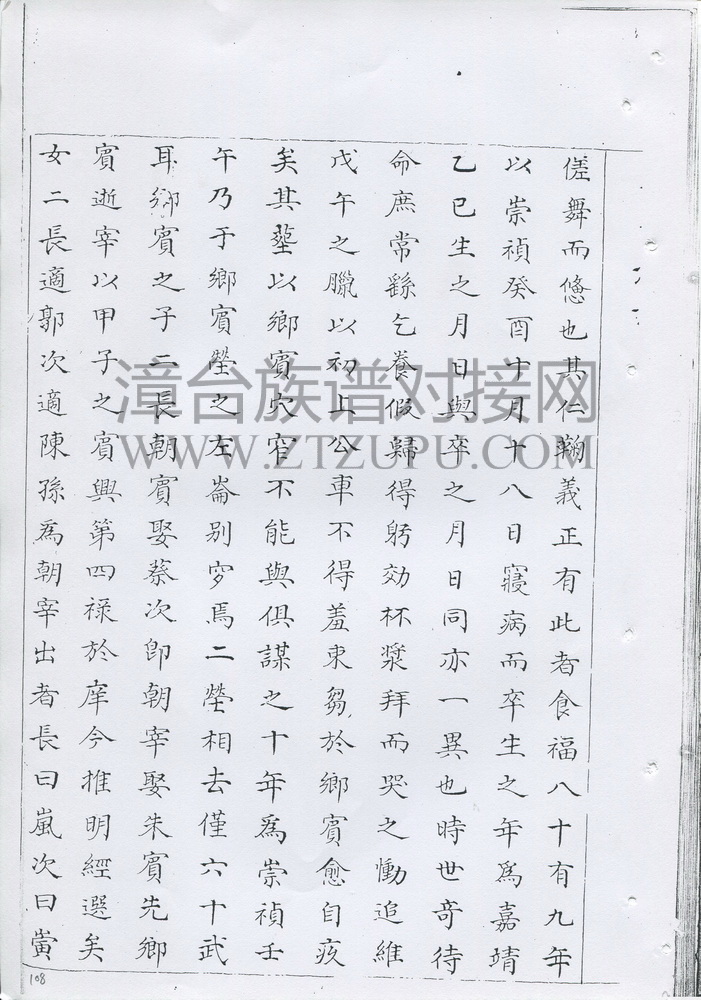 傞舞而憊也其仁鞠義正有此者食福八十有九年
以崇禎癸酉十月十八日寢病而卒生之年爲嘉靖
乙巳生之月日與卒之月日同亦一異也時世奇待
命庶常繇乞養假歸得躬効杯漿拜而哭之慟追維
戊午之臘以初上公車不得羞束芻於鄉賓愈自疚
矣其塟以鄉賓穴窄不能與俱謀之十年爲崇禎壬
午乃于鄉賓塋之左崙別穸焉二塋相去僅六十武
耳鄉賓之子二長朝賓娶蔡次卽朝宰娶朱賓先鄉
賓逝宰以甲子之賓興第四祿於庠今推明經選矣
女二長適郭次適陳孫爲朝宰出者長曰嵐次曰黌
漳台族谱对接网
WWW.ZTZUPU.COM
108